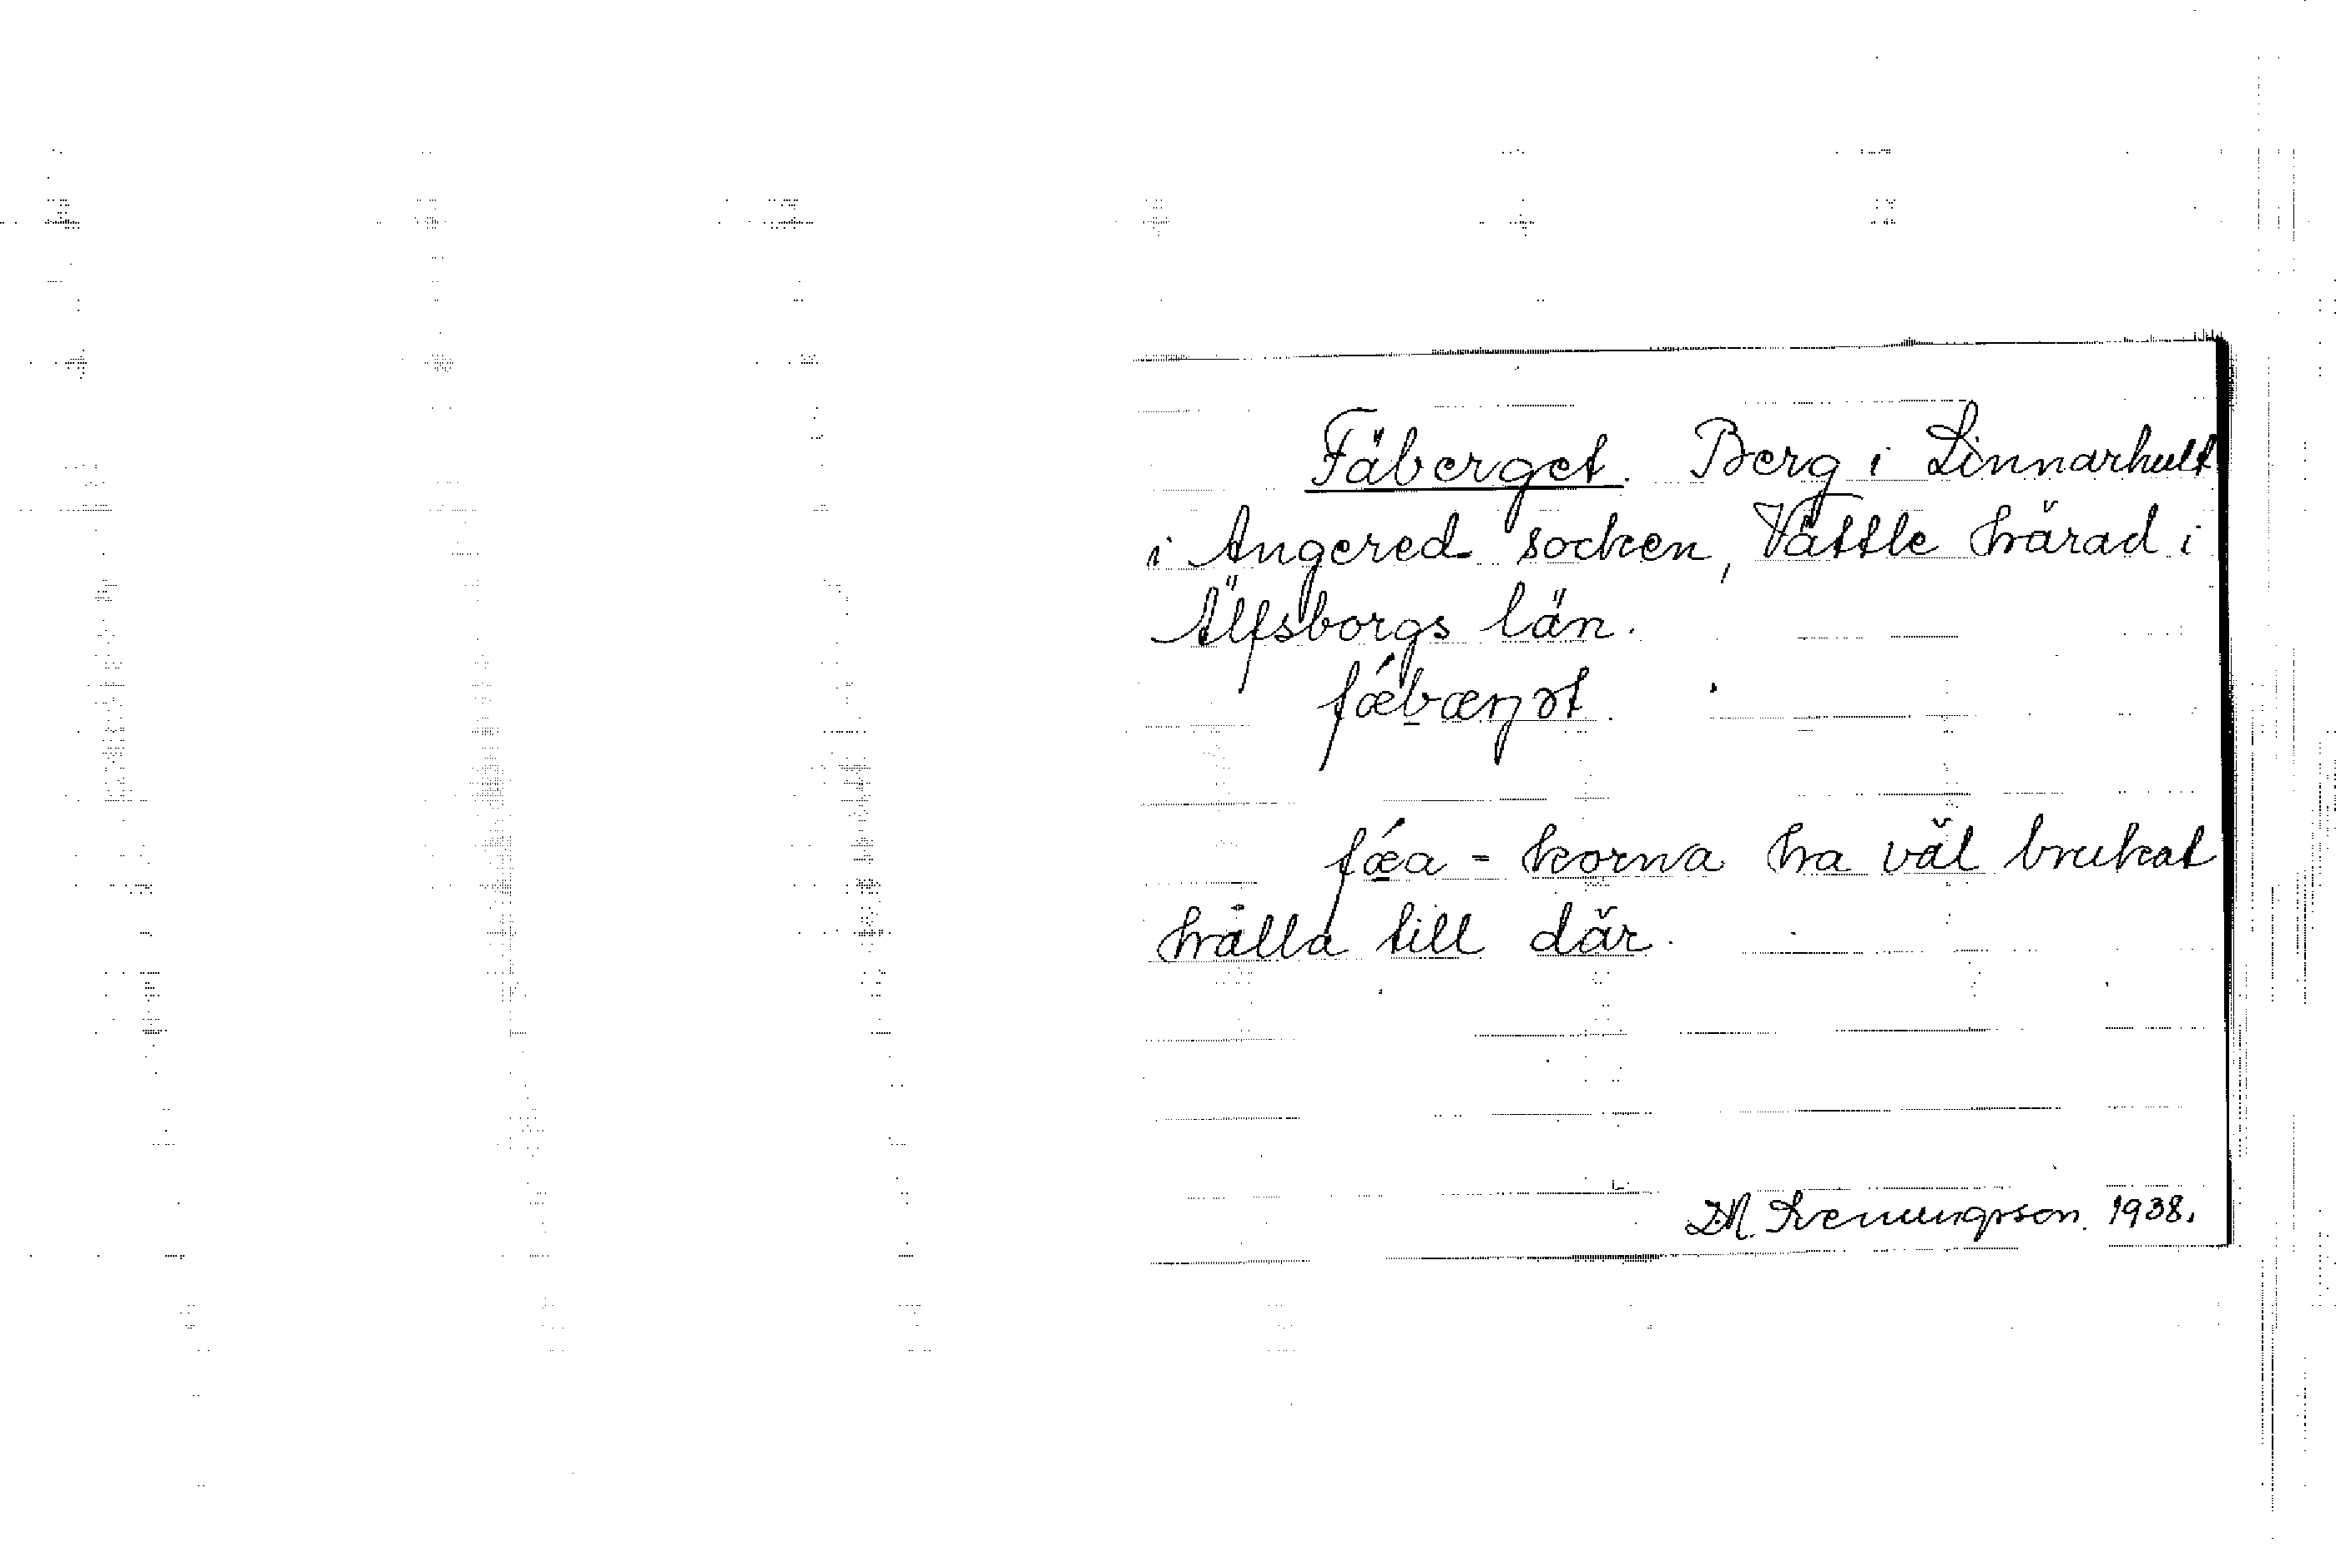 Fäberget. Berg i Linnarhult
i Angered socken, Vättle härad i
Älfsborgs län.
fǽbærjət
fǽa - korna ha väl brukat
hålla till där.
1938.